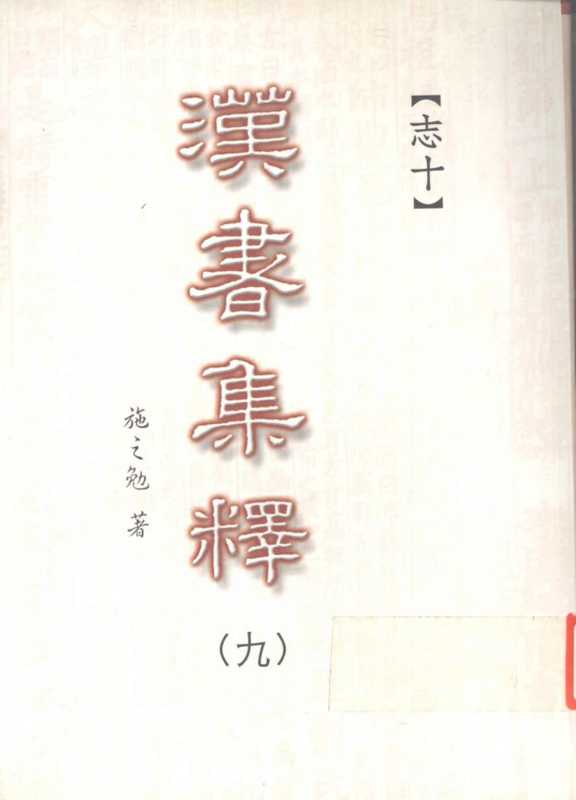 【志十】
漢書集釋
（九）
施之勉 著